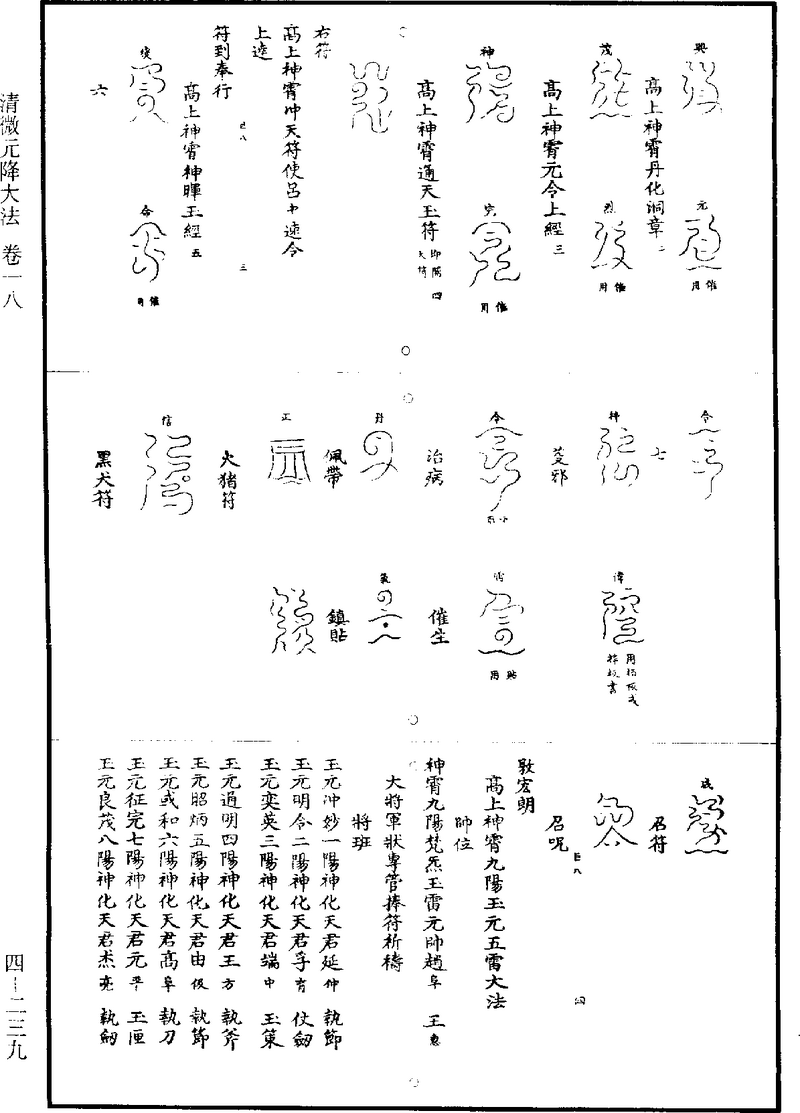 興 元 催用
高上神霄丹化洞章 二
茂 烈 催用
高上神霄元令上經 三
神 完 催用
高上神霄通天玉符 四
右符
高上神霄冲天符使呂中速令
上達
符到奉行
高上神霄神暉玉經 五
燮 令 催用
六
令
七
諱
芟邪
令
貼用
治病 催生
丹 炁
佩帶 鎮貼
正
火猪符
信
黑犬符
成
召符
召呪
敦宏朗
高上神霄九陽玉元五雷大法
師位
神霄九陽梵炁玉雷元帥趙阜 王惠
大將軍狀專管捧符祈禱
將班
玉元冲妙一陽神化天君延仲 執節
玉元明令二陽神化天君孚育 仗劒
玉元奕英三陽神化天君端中 玉策
玉元通明四陽神化天君王方 執斧
玉元昭炳五陽神化天君由俊 執節
玉元或和六陽神化天君高阜 執刀
玉元征完七陽神化天君元平 玉匣
玉元良茂八陽神化天君杰亮 執劒
清微元降大法 卷一八
四—二三九